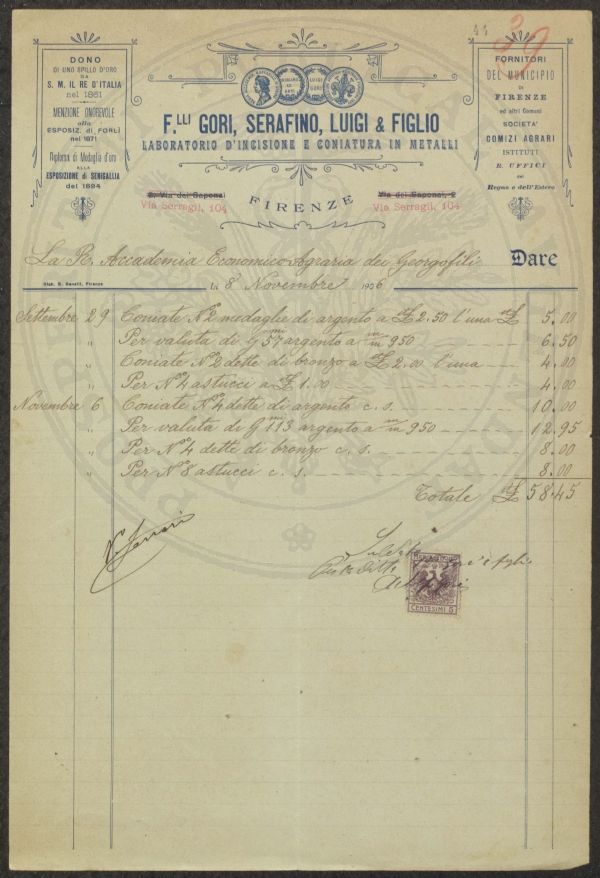 39
DONO
DI UNO SPILLO D'ORO
DA
S. M. IL RE D'ITALIA
nel 1861
MENZIONE ONOREVOLE
alla
ESPOSIZ. di FORLÌ
nel 1871
Diploma di Medaglia d'oro
ALLA
ESPOSIZIONE di SENIGALLIA
del 1894
F.LLI GORI, SERAFINO, LUIGI & FIGLIO
LABORATORIO D'INCISIONE E CONIATURA IN METALLI
FIRENZE
Via dei Saponai
Via Serragli, 104
Via dei Saponai, 2
Via Serragli, 104
FORNITORI
DEL MUNICIPIO
DI
FIRENZE
ed altri Comuni
SOCIETA'
COMIZI AGRARI
ISTITUTI
R. UFFICI
nel
Regno e dell'Estero
La R. Accademia Economico-Agraria dei Georgofili Dare
Stab. G. Benelli, Firenze
lì 8 Novembre 1906
Settembre 29 Coniate N° 2 medaglie di argento a £ 2.50 l'una £ 5.00
" Per valuta di G.mi 57 argento a m/m 950 6.50
" Coniate N° 2 dette di bronzo a £ 2.00 l'una 4.00
" Per N° 4 astucci a £ 1.00 4.00
Novembre 6 Coniate N° 4 dette di argento c. s. 10.00
" Per valuta di G.mi 113 argento a m/m 950 12.95
" Per N° 4 dette di bronzo c. s. 8.00
" Per N° 8 astucci c. s. 8.00
Totale £ 58.45
Saldato
Gori e figlio
CENTESIMI 5